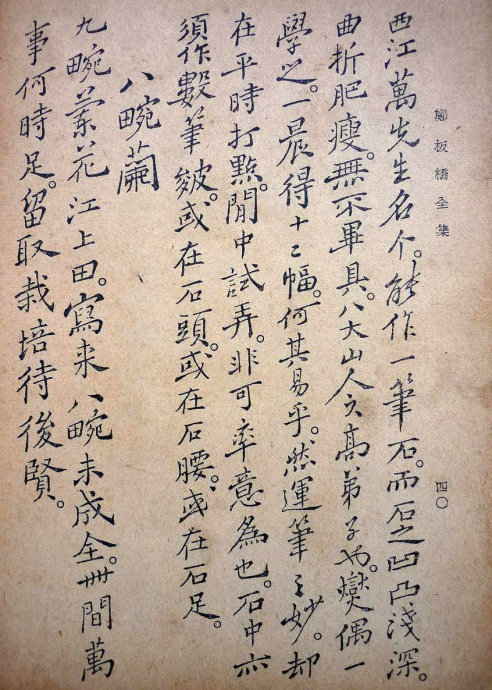 鄭板橋全集
四〇
西江萬先生名个。能作一筆石。而石之凹凸淺深。
曲折肥瘦。無不畢具。八大山人之高弟子也。燮偶一
學之。一晨得十二幅。何其易乎。然運筆之妙。却
在平時打點。閒中試弄。非可率意為也。石中亦
須作數筆皴。或在石頭。或在石腰。或在石足。
八畹蘭
九畹蘭花江上田。寫来八畹未成全。世間萬
事何時足。留取栽培待後賢。